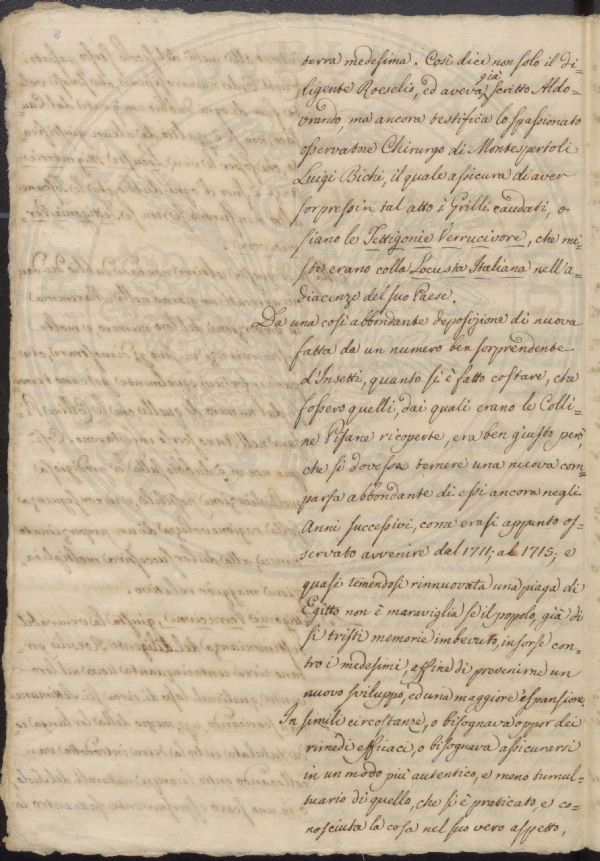 terra medesima. Così dice non solo il di-
ligente Roeselio, ed aveva già scritto Aldo-
vrando, ma ancora testifica lo spassionato
osservatore Chirurgo di Montespertoli
Luigi Bichi, il quale assicura di aver
sorpressi in tal atto i Grilli caudati, o
siano le Tettigonie Verrucivore, che mi-
ste erano colla Locusta Italiana nell'a-
diacenze del suo Paese.
Da una così abbondante deposizione di nuova
fatta da un numero ben sorprendente
d'Insetti, quanto si è fatto costare, che
fossero quelli, dai quali erano le Colli-
ne Pisane ricoperte, era ben giusto però,
che si dovesse temere una nuova com-
parsa abbondante di essi ancora negli
Anni successivi, come erasi appunto os-
servato avvenire dal 1711; al 1715; e
quasi temendosi rinnuovata una piaga di
Egitto non è maraviglia se il popolo, già di
si tristi memorie imbevuto, insorse con-
tro i medesimi, affine di prevenirne un
nuovo sviluppo, ed una maggiore espansione.
In simili circostanze, o bisognava oppor dei
rimedi efficaci, o bisognava assicurarsi
in un modo più autentico, e meno tumul-
tuario di quello, che si è praticato, e co-
nosciuta la cosa nel suo vero aspetto,